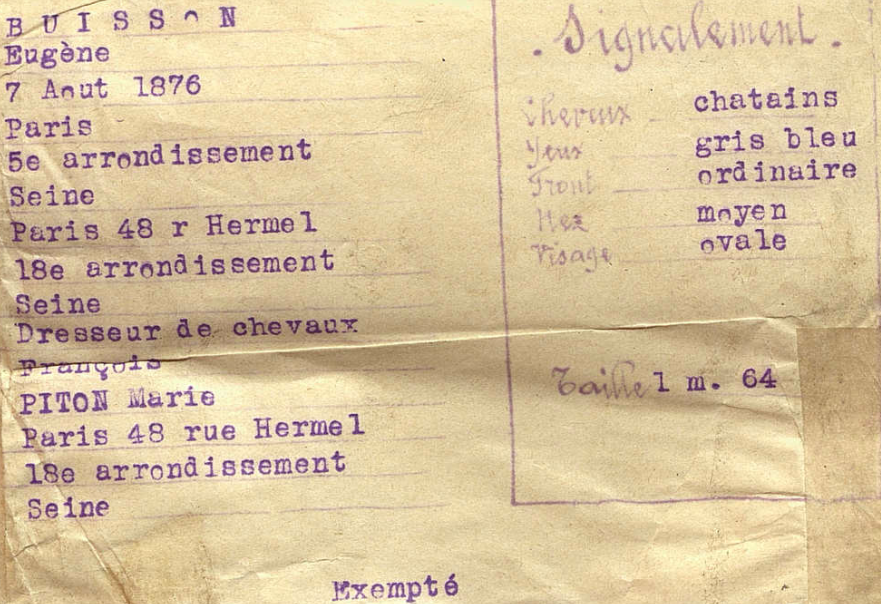 BUISSON
Eugène
7 Aout 1876
Paris
5e arrondissement
Seine
Paris 48 r Hermel
18e arrondissement
Seine
Dresseur de chevaux
François
PITON Marie
Paris 48 rue Hermel
18e arrondissement
Seine
Exempté
Signalement.
Cheveux chatains
Yeux gris bleu
Front ordinaire
Nez moyen
Visage ovale
Taille 1 m. 64